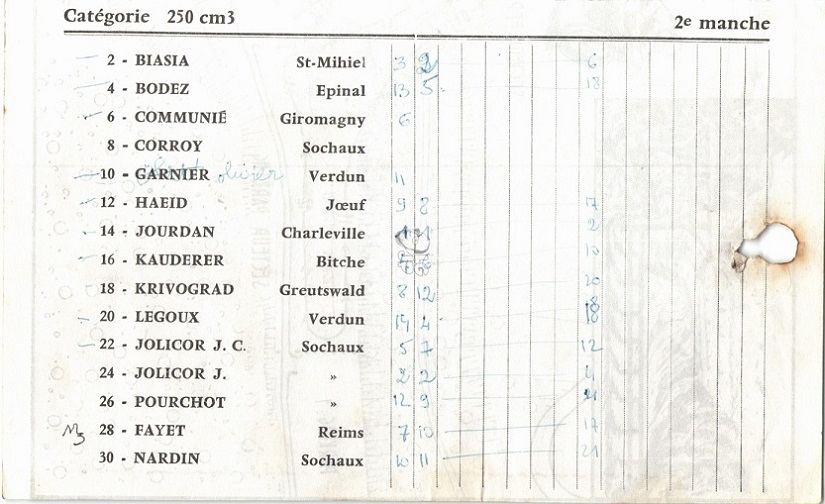 Catégorie 250 cm3 2e manche
2 - BIASIA St-Mihiel 3 2 6
4 - BODEZ Epinal 13 5 18
6 - COMMUNIÉ Giromagny 6
8 - CORROY Sochaux
10 - GARNIER olivier Verdun 11
12 - HAEID Jœuf 9 8 17
14 - JOURDAN Charleville 1 2
16 - KAUDERER Bitche
18 - KRIVOGRAD Greutswald 8 12 20
20 - LEGOUX Verdun 14 4 18
22 - JOLICOR J. C. Sochaux 5 7 12
24 - JOLICOR J. » 2 2 4
26 - POURCHOT » 12 9
28 - FAYET Reims 7 10 17
30 - NARDIN Sochaux 10 11 21